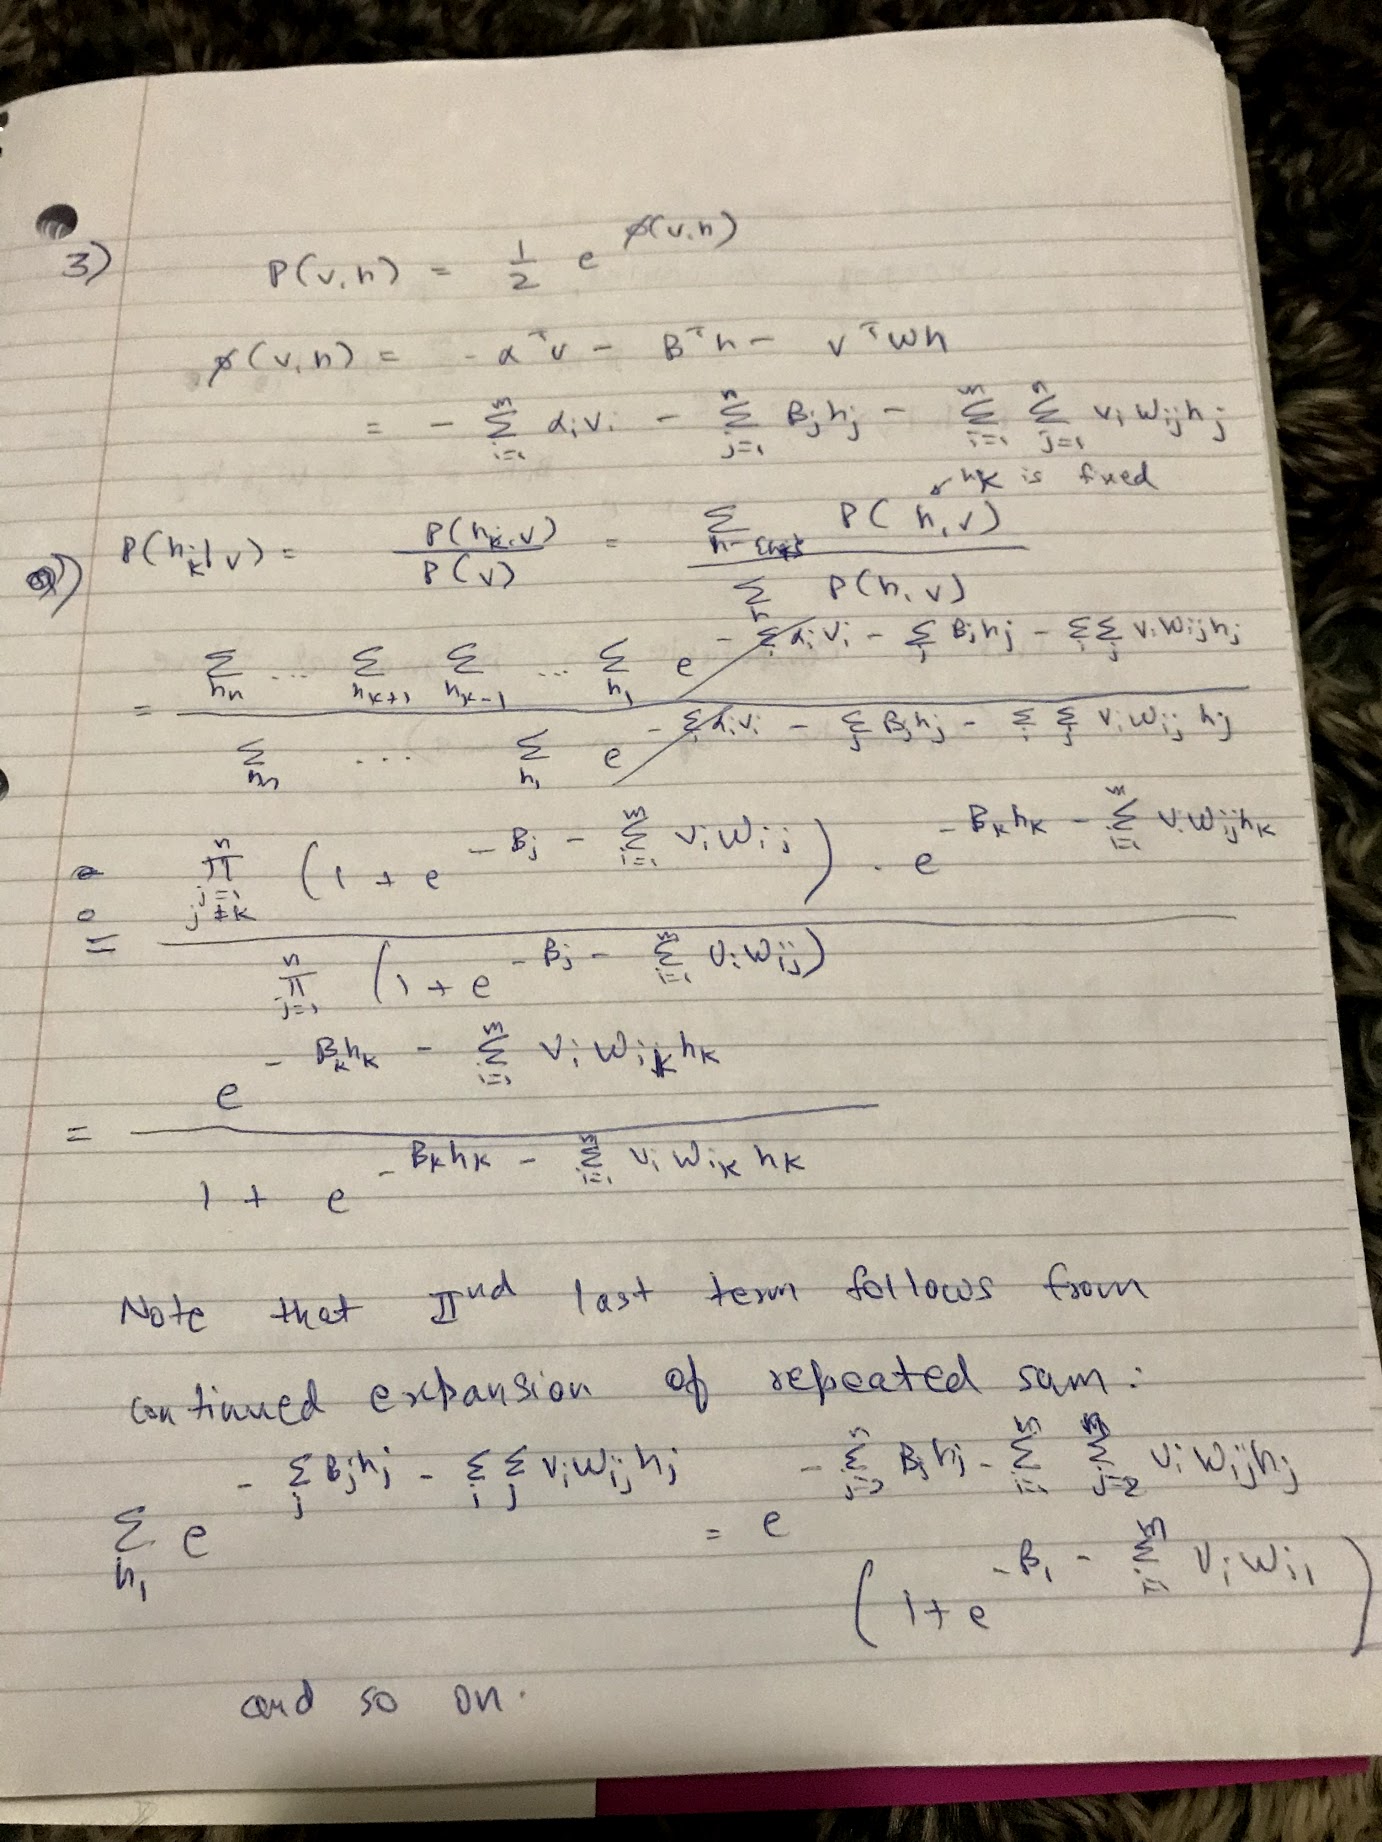 3) P(v,h) = 1/2 e^{ϕ(v,h)}
ϕ(v,h) = -α^T v - B^T h - v^T W h
= - Σ_{i=1}^{m} α_i v_i - Σ_{j=1}^{n} B_j h_j - Σ_{i=1}^{m} Σ_{j=1}^{n} v_i W_{ij} h_j
h_k is fixed
a) P(h_k|v) = P(h_k,v) / P(v) = Σ_{h-{h_k}} P(h,v) / Σ_h P(h,v)
= Σ_{h_n} ... Σ_{h_{k+1}} Σ_{h_{k-1}} ... Σ_{h_1} e^{- Σ_i α_i v_i - Σ_j B_j h_j - Σ_i Σ_j v_i W_{ij} h_j} / Σ_{h_n} ... Σ_{h_1} e^{- Σ_i α_i v_i - Σ_j B_j h_j - Σ_i Σ_j v_i W_{ij} h_j}
= Π_{j=1, j≠k}^{n} (1 + e^{-B_j - Σ_{i=1}^{m} v_i W_{ij}}) . e^{-B_k h_k - Σ_{i=1}^{m} v_i W_{ij} h_k} / Π_{j=1}^{n} (1 + e^{-B_j - Σ_{i=1}^{m} v_i W_{ij}})
= e^{-B_k h_k - Σ_{i=1}^{m} v_i W_{ik} h_k} / 1 + e^{-B_k h_k - Σ_{i=1}^{m} v_i W_{ik} h_k}
Note that IInd last term follows from
continued expansion of repeated sum:
Σ_{h_1} e^{- Σ_j B_j h_j - Σ_i Σ_j v_i W_{ij} h_j} = e^{- Σ_{j=2}^{n} B_j h_j - Σ_{i=1}^{m} Σ_{j=2}^{n} v_i W_{ij} h_j}
(1 + e^{-B_1 - Σ_{i=1}^{m} v_i W_{i1}})
and so on.